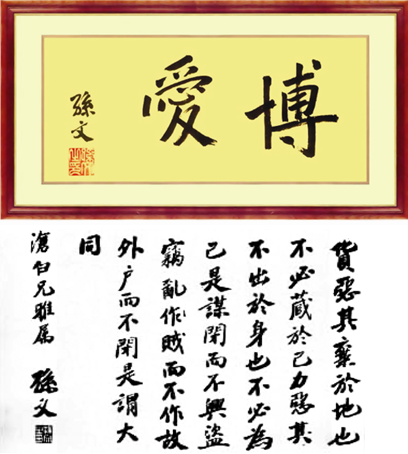 博愛
孫文
貨惡其棄於地也
不必藏於己力惡其
不出於身也不必為
己是謀閉而不興盜
竊亂作賊而不作故
外户而不閉是謂大
同
滄白兄雅屬 孫文